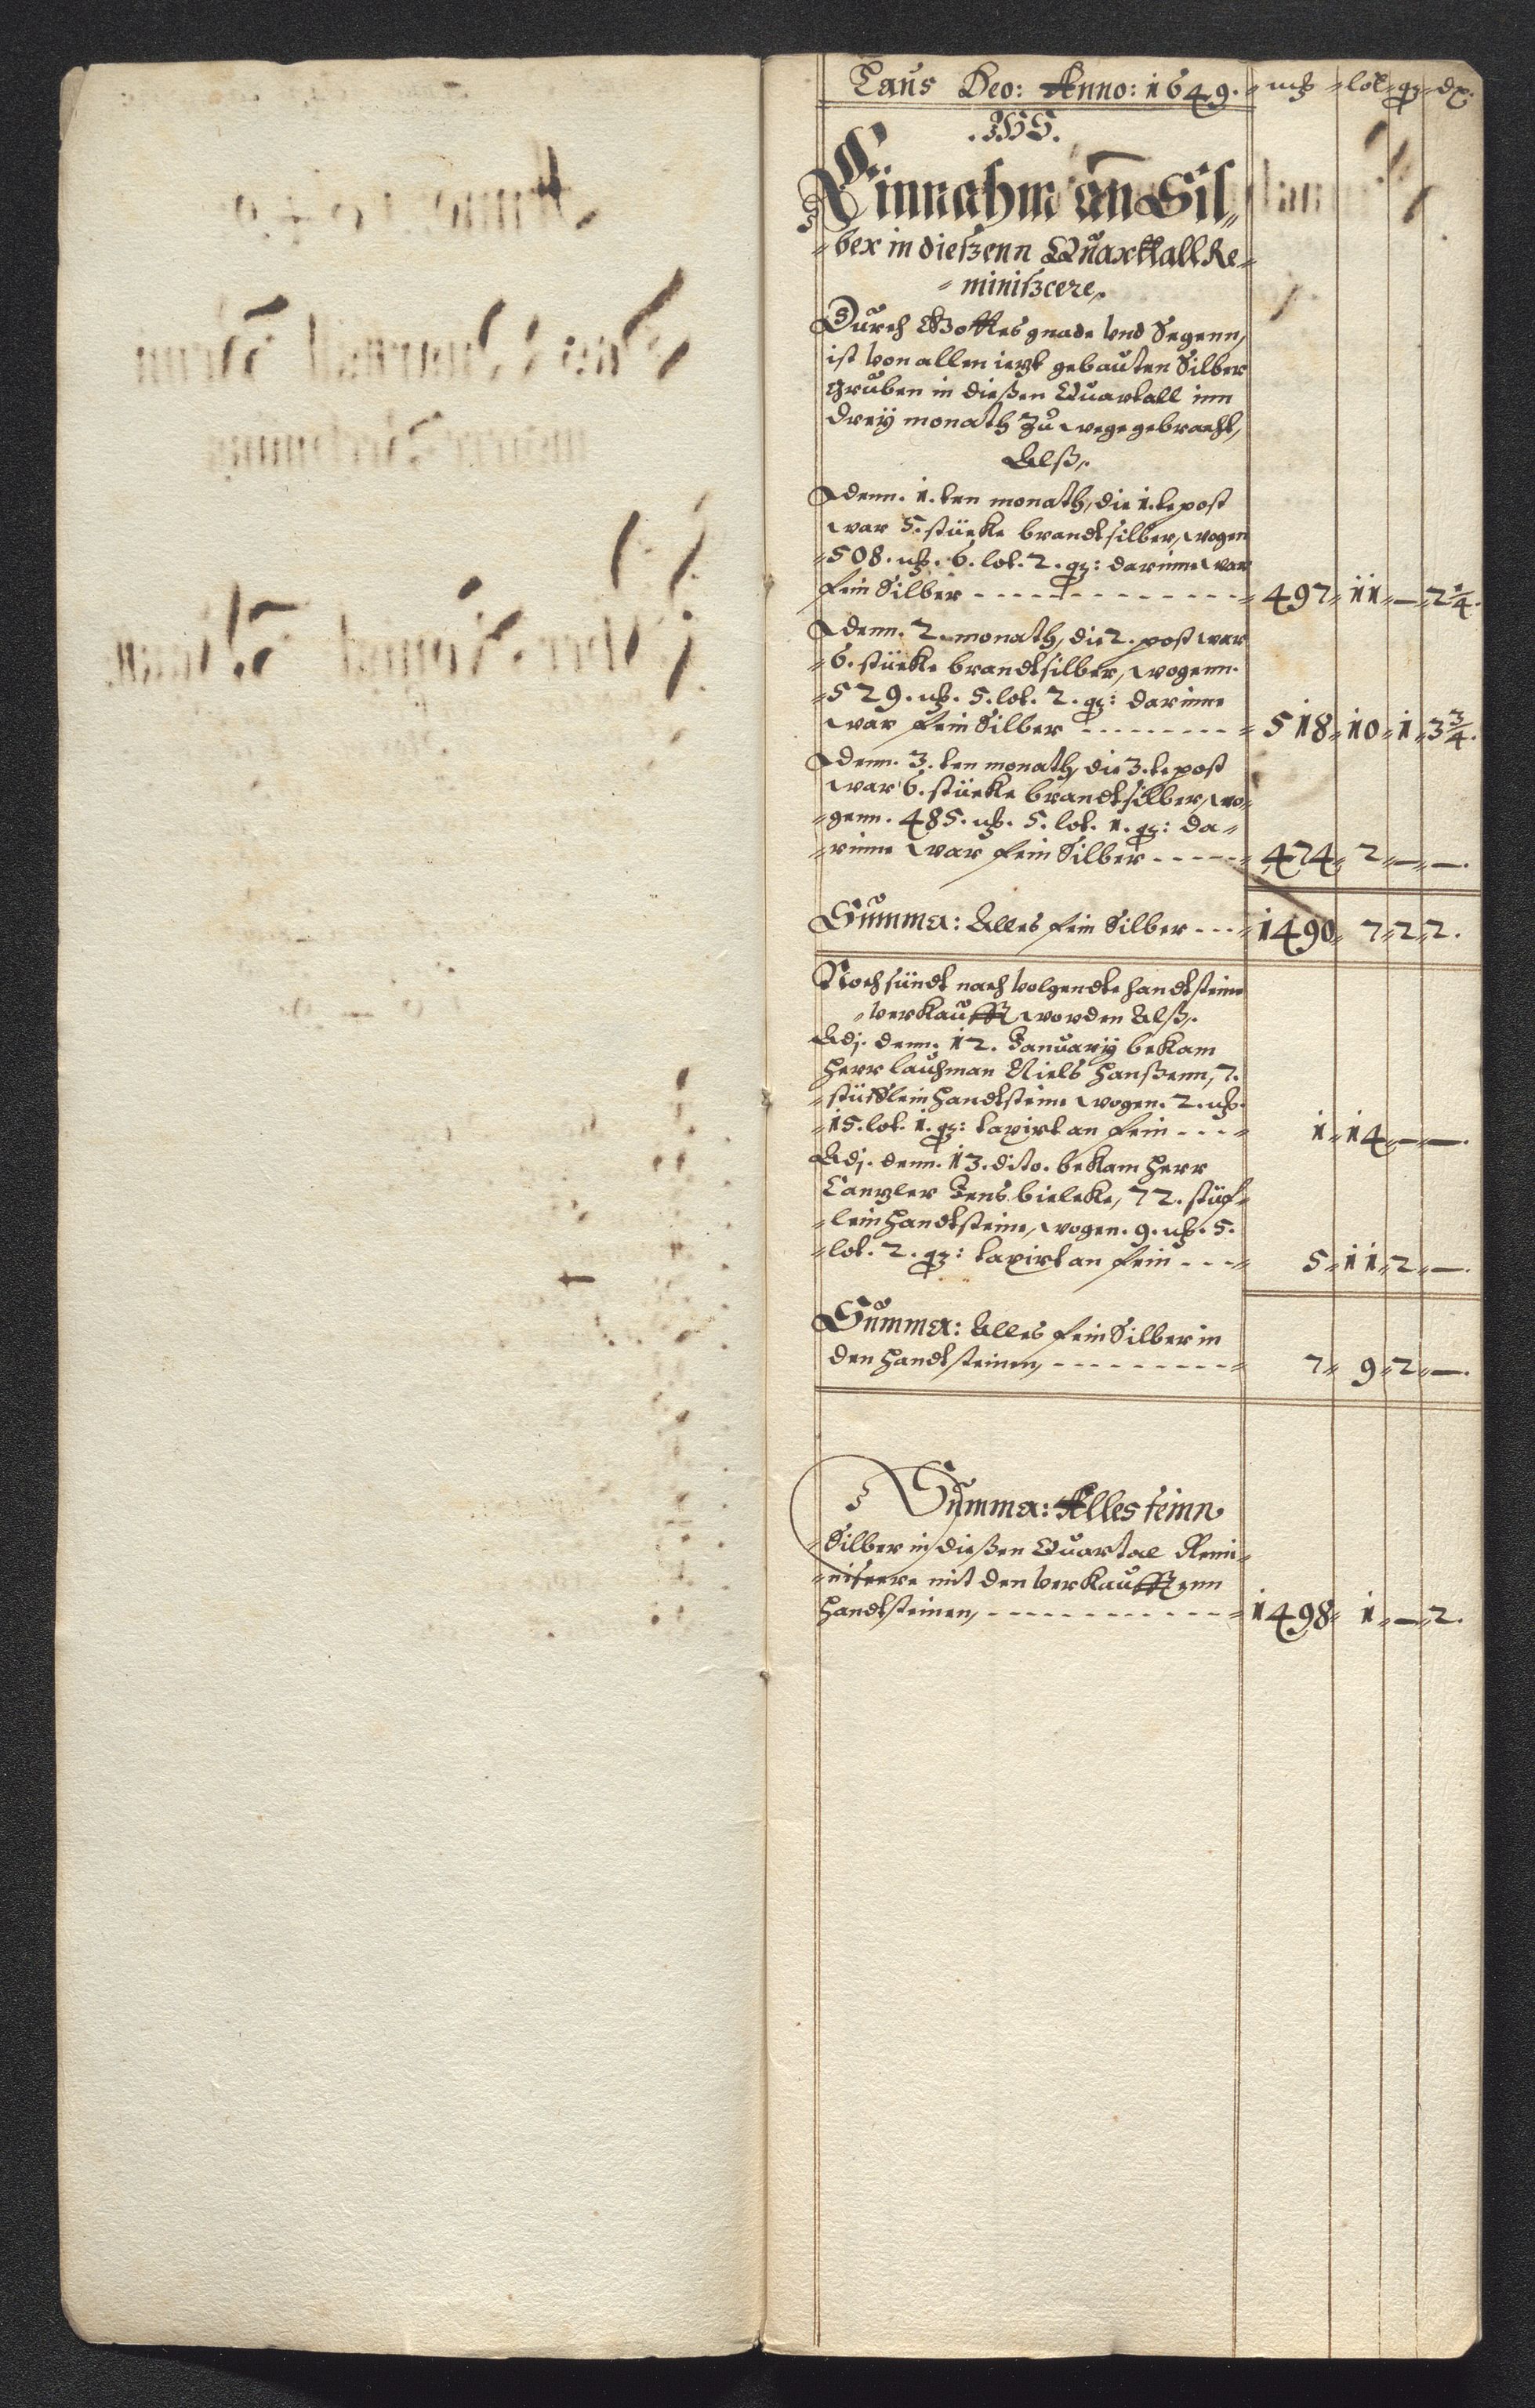 Laus Deo: Anno: 1649. mk lot qz dx.
.IHS.
Einnahm an Sil=
=ber in dieszenn Quarttall Re=
=miniszcere,
Durch Gottes gnade vnd Segenn,
ist von allen ietzt gebauten Silber
Gruben in dießen Quartall inn
Dreÿ monath Zu wege gebracht,
Alß,
Adenn. 1. ten monath, die 1. te post
war 5. stücke brandtsilber, wogen
=508. mk. 6. lot. 2. qz: darinne war
fein Silber - - - = 497 = 11 = — = 2 1/4.
Adenn. 2. monath, die 2. post war
=6. stücke brandtsilber, wogenn.
=529. mk. 5. lot. 2. qz: darinne
war fein Silber - - - = 518 = 10 = 1 = 3 3/4.
Adenn. 3. ten monath, die 3. te post
war 6. stücke brandtsilber, wo=
=genn. 485. mk. 5. lot. 1. qz: da=
=rinne war fein Silber - - - = 474 = 2 = — = —.
Summa: Alles fein Silber - - - = 1490 = 7 = 2 = 2.
Noch sündt nach volgendte handtsteine
=verkaufft worden Alß,
Adj. denn. 12. Januarij bekam
Herr lauhman Niels Hanßenn, 7.
=stüfflein Handtsteine wogen. 2. mk.
=15. lot. 1. qz: taxirt an fein - - - = 1 = 14 = — = —.
Adj. denn. 13. dito. bekam Herr
Cantzler Jens bielcke, 72. stüf=
=lein Handtsteine, wogen. 9. mk. 5.
=lot. 2. qz: taxirt an fein - - - = 5 = 11 = 2 = —.
Summa: Alles fein Silber in
den Handtsteinen, - - - = 7 = 9 = 2 = —.
Summa: Alles feinn
=Silber in dießen Quartal Remi=
=niscere mit den verkaufftenn
Handtsteinen, - - - = 1498 = 1 = — = 2.